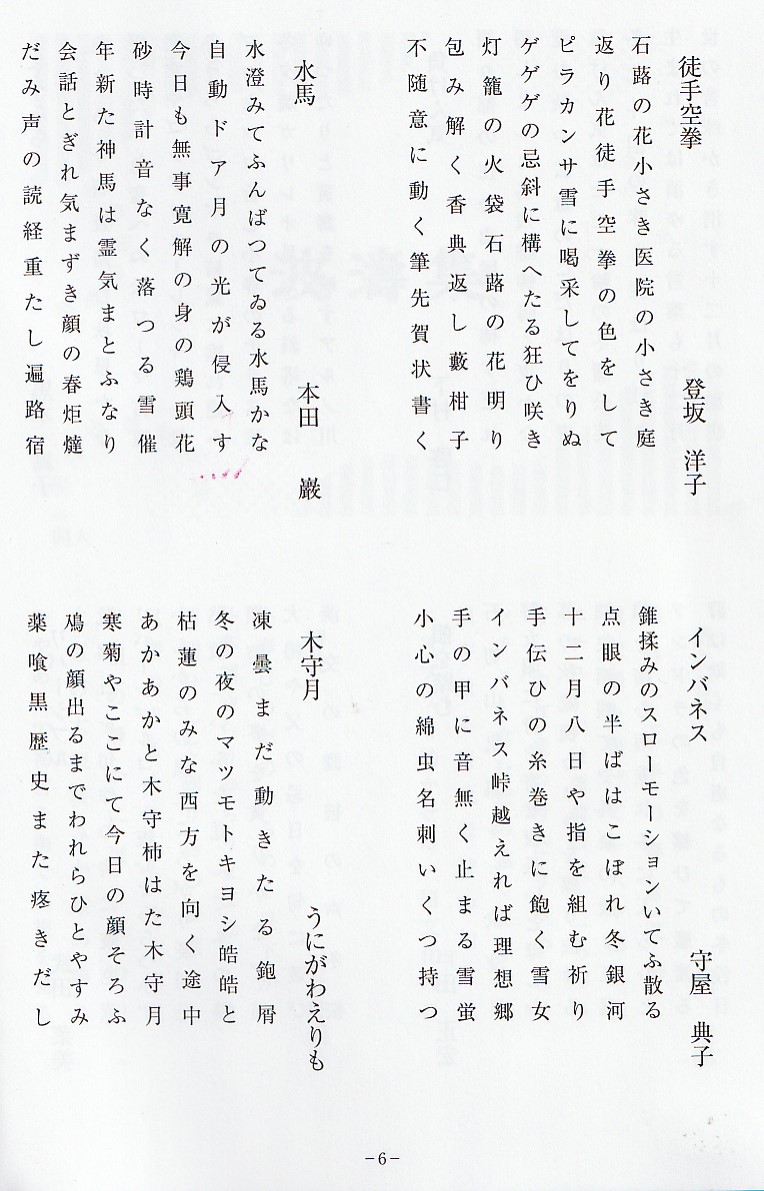 徒手空拳
登坂　洋子
石蕗の花小さき医院の小さき庭
返り花徒手空拳の色をして
ピラカンサ雪に喝采してをりぬ
ゲゲゲの忌斜に構へたる狂ひ咲き
灯籠の火袋石蕗の花明り
包み解く香典返し藪柑子
不随意に動く筆先賀状書く
水馬
本田　巌
水澄みてふんばつてゐる水馬かな
自動ドア月の光が侵入す
今日も無事寛解の身の鶏頭花
砂時計音なく落つる雪催
年新た神馬は霊気まとふなり
会話とぎれ気まずき顔の春炬燵
だみ声の読経重たし遍路宿
インバネス
守屋　典子
錐揉みのスローモーションいてふ散る
点眼の半ばはこぼれ冬銀河
十二月八日や指を組む祈り
手伝ひの糸巻きに飽く雪女
インバネス峠越えれば理想郷
手の甲に音無く止まる雪蛍
小心の綿虫名刺いくつ持つ
木守月
うにがわえりも
凍曇まだ動きたる鉋屑
冬の夜のマツモトキヨシ皓皓と
枯蓮のみな西方を向く途中
あかあかと木守柿はた木守月
寒菊やここにて今日の顔そろふ
鳰の顔出るまでわれらひとやすみ
薬喰黒歴史また疼きだし
－6－